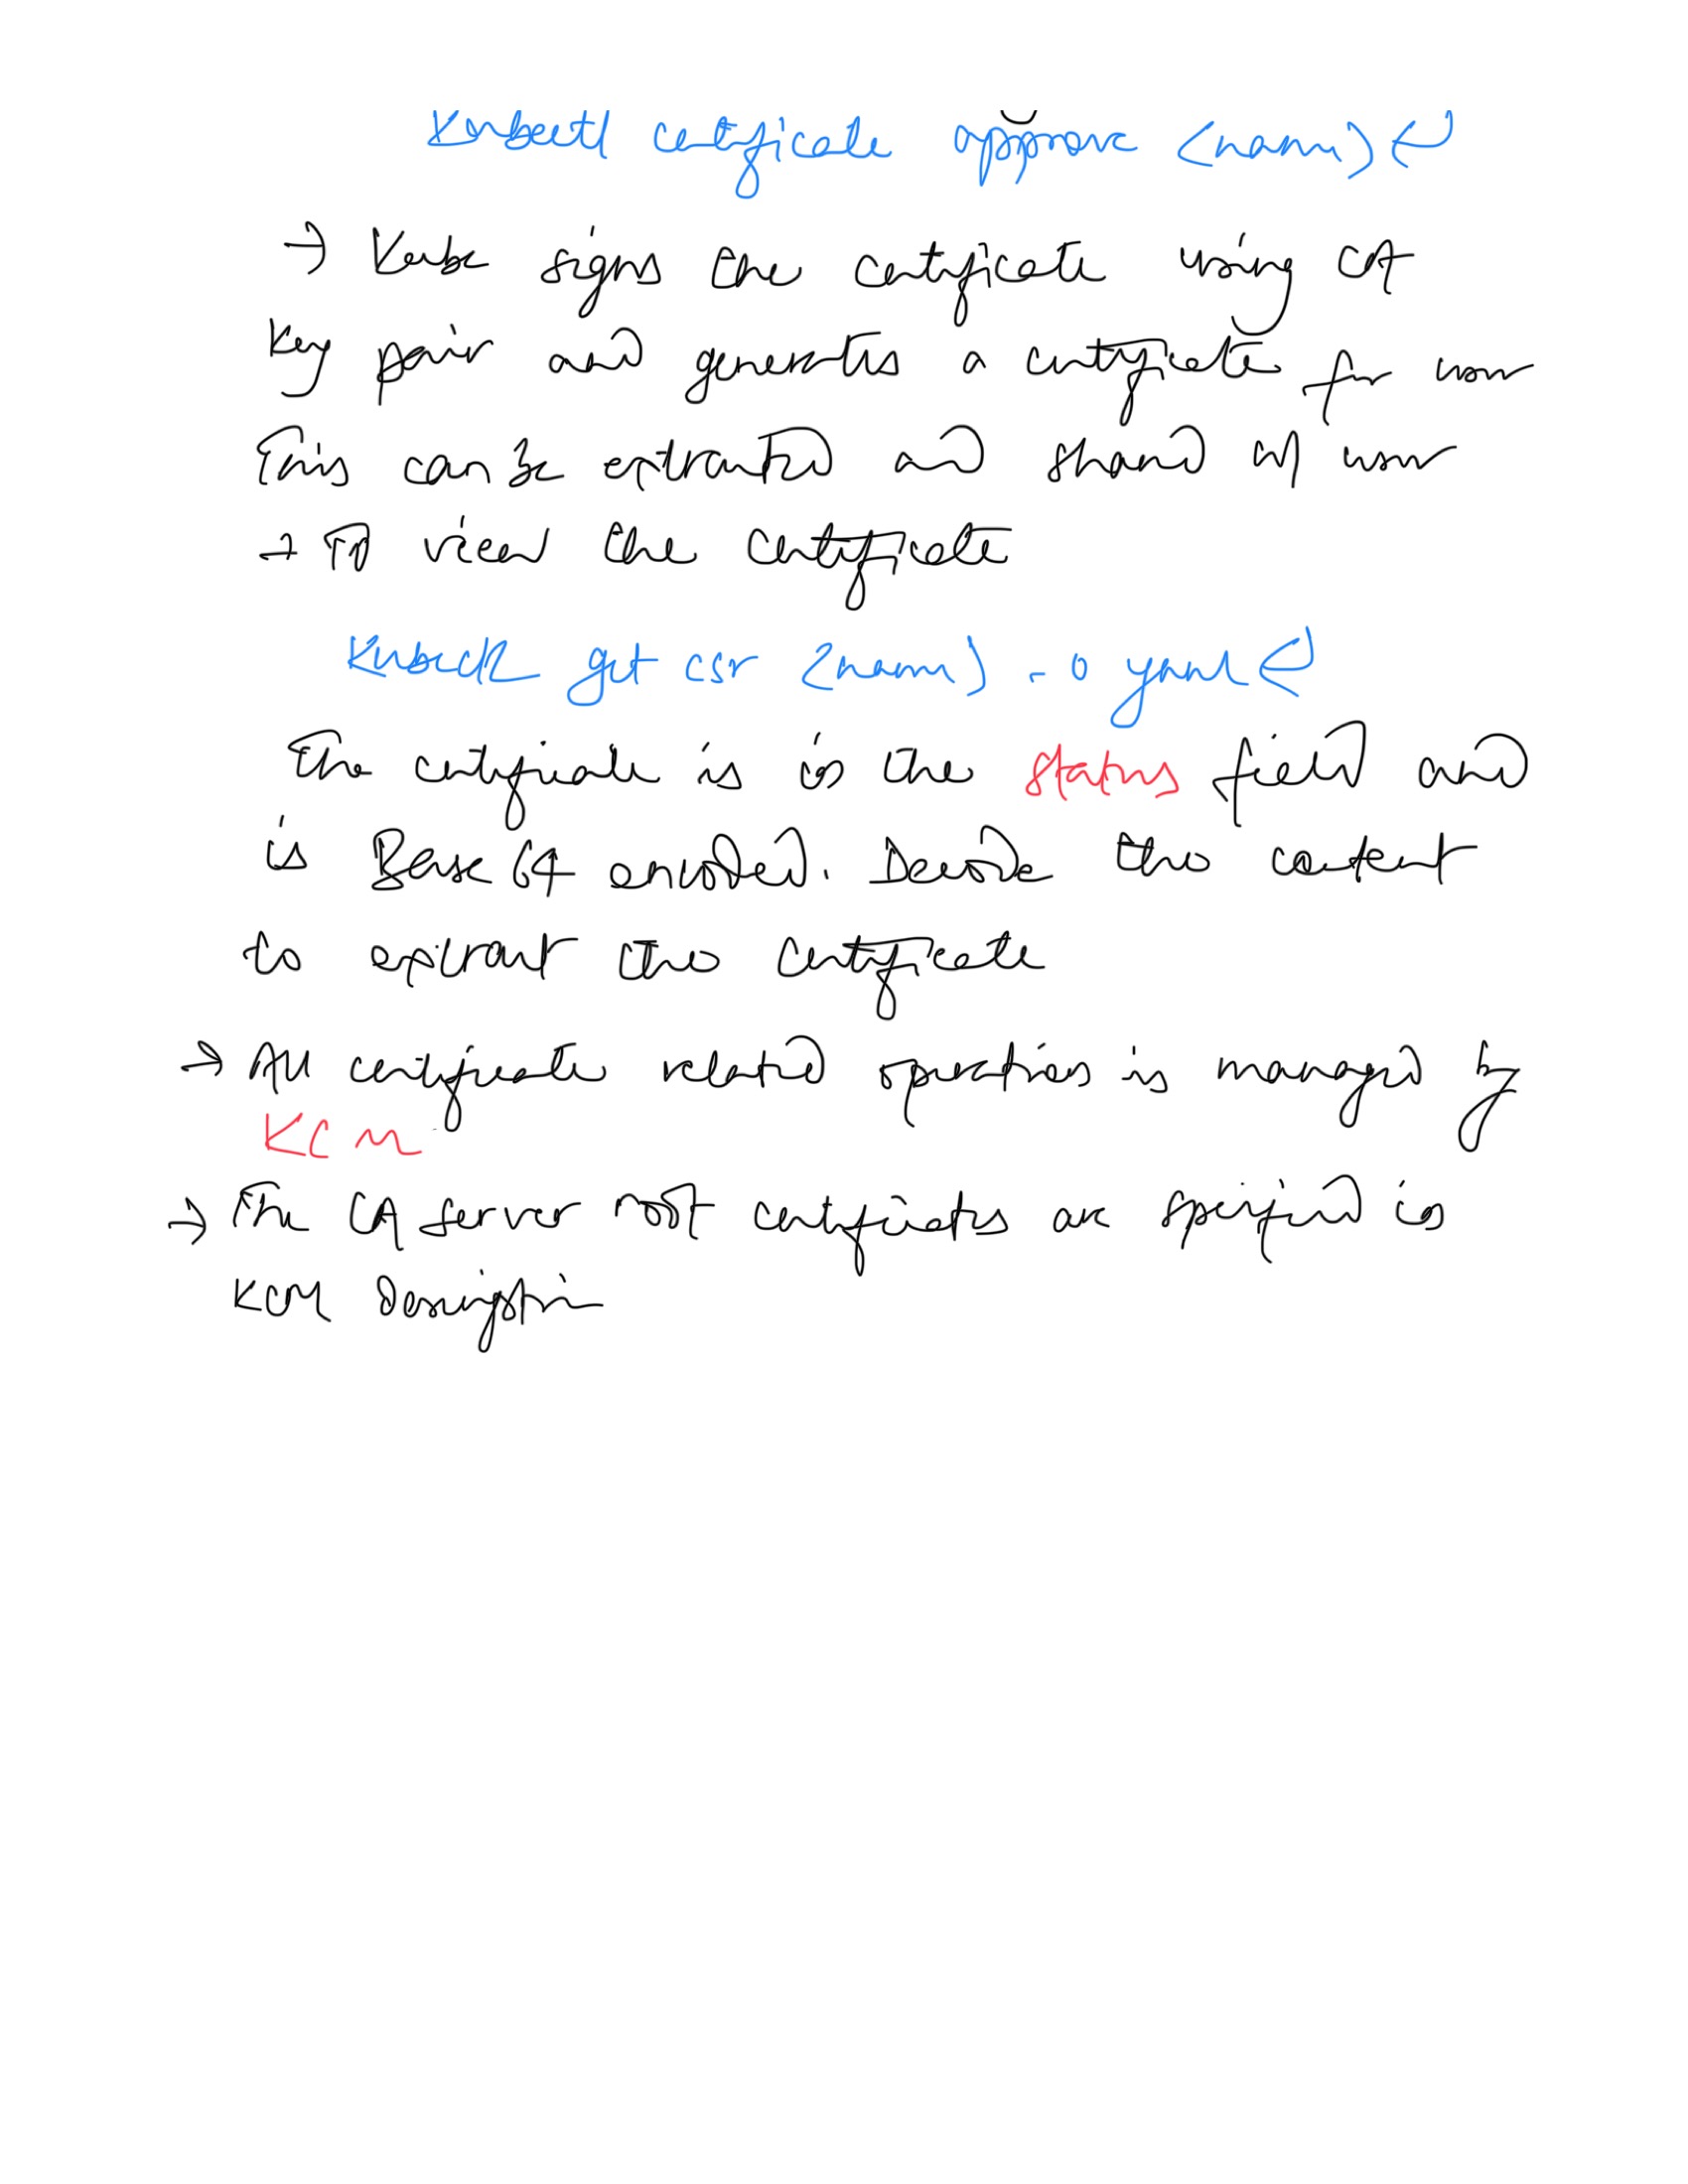 Kubectl certificate approve <name> ↵
→ Kube signs the certificate using CA
key pair and generates a certificate for user
This can be extracted and shared w/ user
→ To view the certificate
Kubectl get csr <name> -o yaml ↵
The certificate is in the status field and
is Base 64 encoded. Decode the content
to extract the certificate
→ All certificate related operations is managed by
KCM
→ The CA server root certificates are specified in
KCM